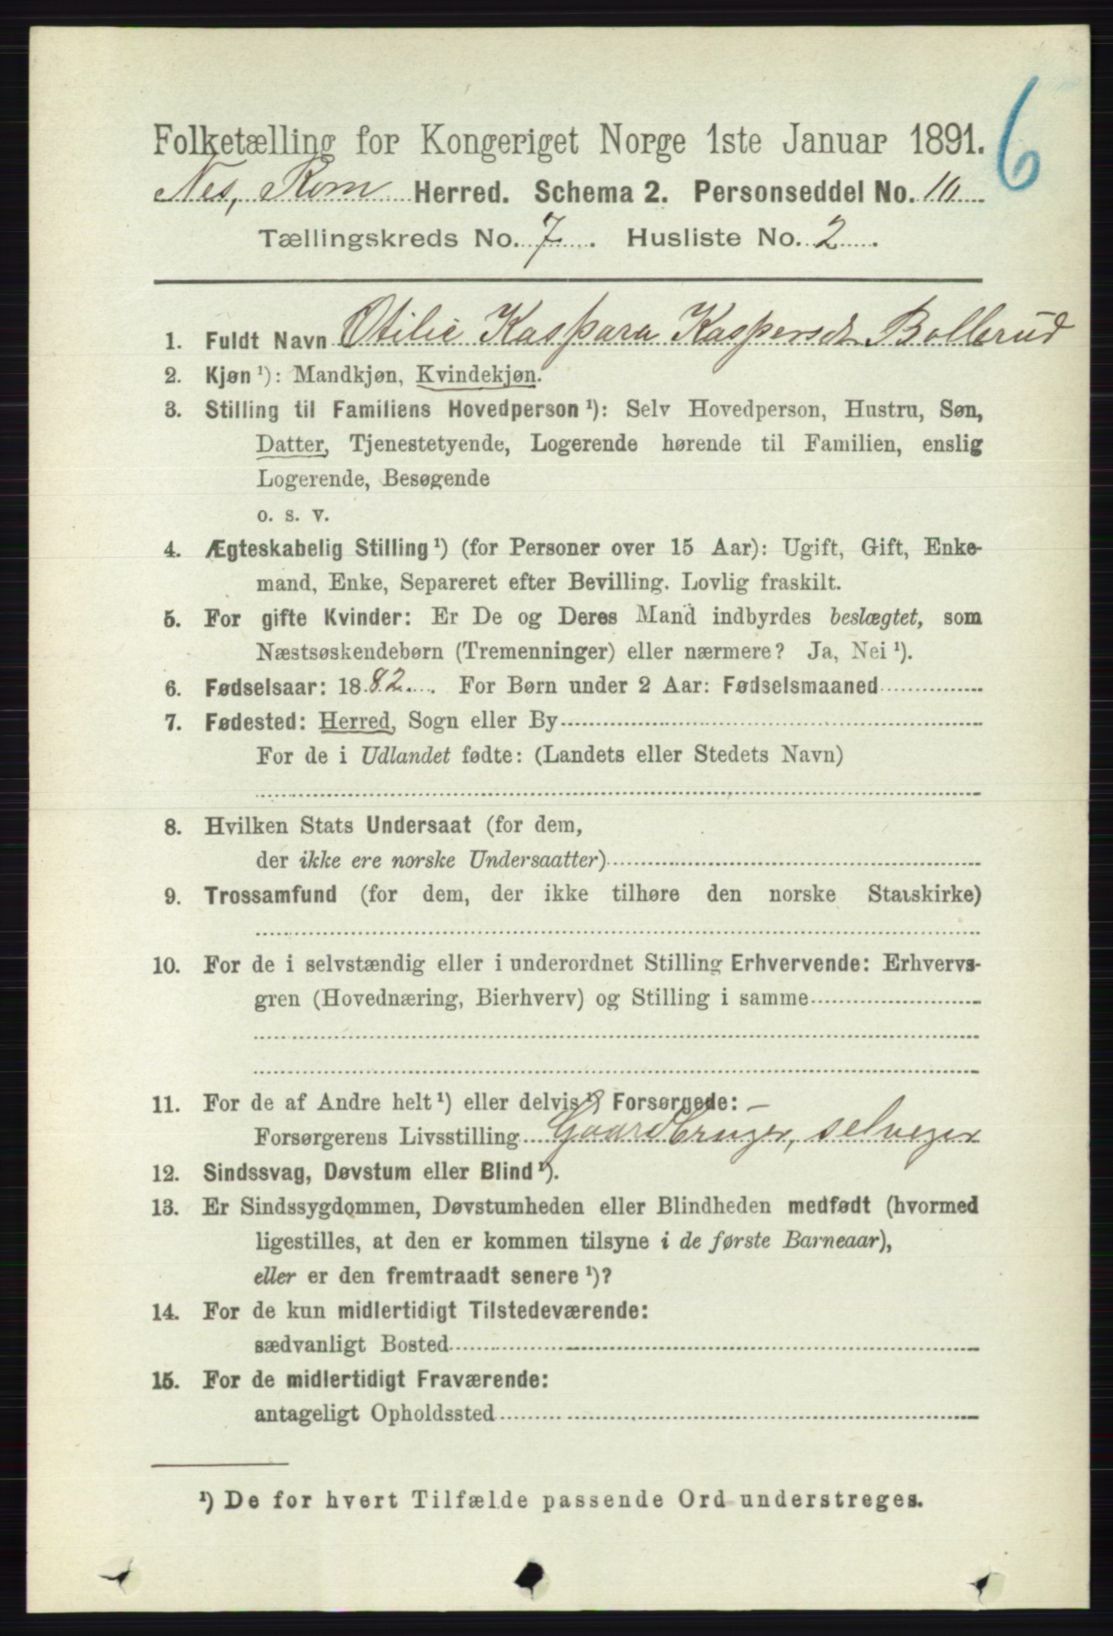 6
Folketælling for Kongeriget Norge 1ste Januar 1891.
Nes, Rom. Herred. Schema 2. Personseddel No. 10
Tællingskreds No. 7. Husliste No. 2.
1. Fuldt Navn Otilie Kaspara Kaspersdr Bollerud
2. Kjøn ¹): Mandkjøn, Kvindekjøn.
3. Stilling til Familiens Hovedperson ¹): Selv Hovedperson, Hustru, Søn,
Datter, Tjenestetyende, Logerende hørende til Familien, enslig
Logerende, Besøgende
o. s. v.
4. Ægteskabelig Stilling ¹) (for Personer over 15 Aar): Ugift, Gift, Enke-
mand, Enke, Separeret efter Bevilling. Lovlig fraskilt.
5. For gifte Kvinder: Er De og Deres Mand indbyrdes beslægtet, som
Næstsøskendebørn (Tremenninger) eller nærmere? Ja, Nei ¹).
6. Fødselsaar: 1882. For Børn under 2 Aar: Fødselsmaaned
7. Fødested: Herred, Sogn eller By
For de i Udlandet fødte: (Landets eller Stedets Navn)
8. Hvilken Stats Undersaat (for dem,
der ikke ere norske Undersaatter)
9. Trossamfund (for dem, der ikke tilhøre den norske Statskirke)
10. For de i selvstændig eller i underordnet Stilling Erhvervende: Erhvervs-
gren (Hovednæring, Bierhverv) og Stilling i samme
11. For de af Andre helt ¹) eller delvis ¹) Forsørgede: -
Forsørgerens Livsstilling Gaardbruger, selveger
12. Sindssvag, Døvstum eller Blind ¹).
13. Er Sindssygdommen, Døvstumheden eller Blindheden medfødt (hvormed
ligestilles, at den er kommen tilsyne i de første Barneaar),
eller er den fremtraadt senere ¹)?
14. For de kun midlertidigt Tilstedeværende:
sædvanligt Bosted
15. For de midlertidigt Fraværende:
antageligt Opholdssted
¹) De for hvert Tilfælde passende Ord understreges.